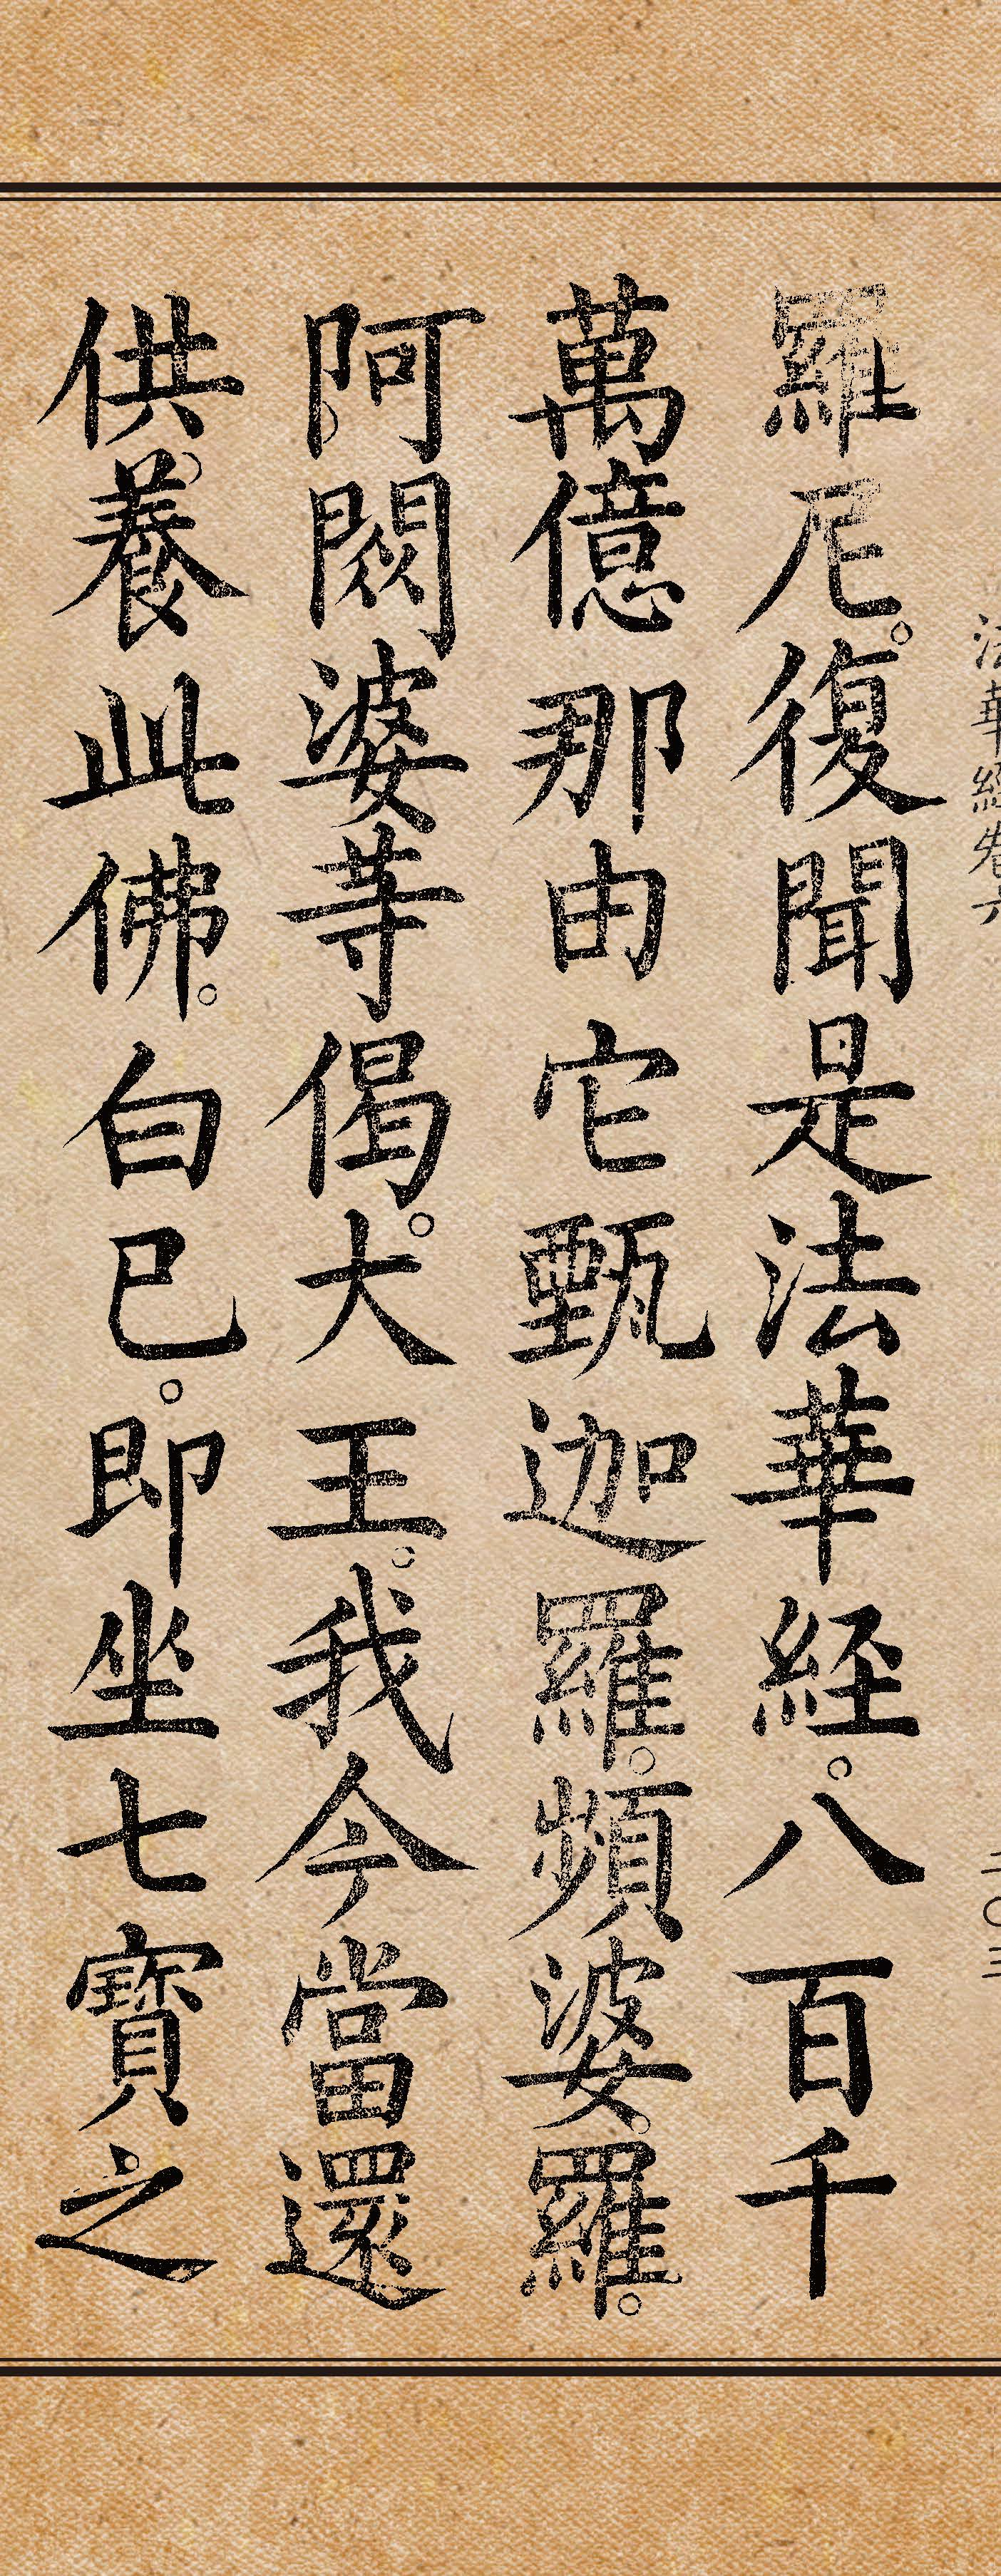 法華經卷六
二〇三
羅尼。復聞是法華経。八百千
萬億那由它甄迦羅。頻婆。羅。
阿閦婆等偈。大王。我今當還
供養此佛。白已。即坐七寶之